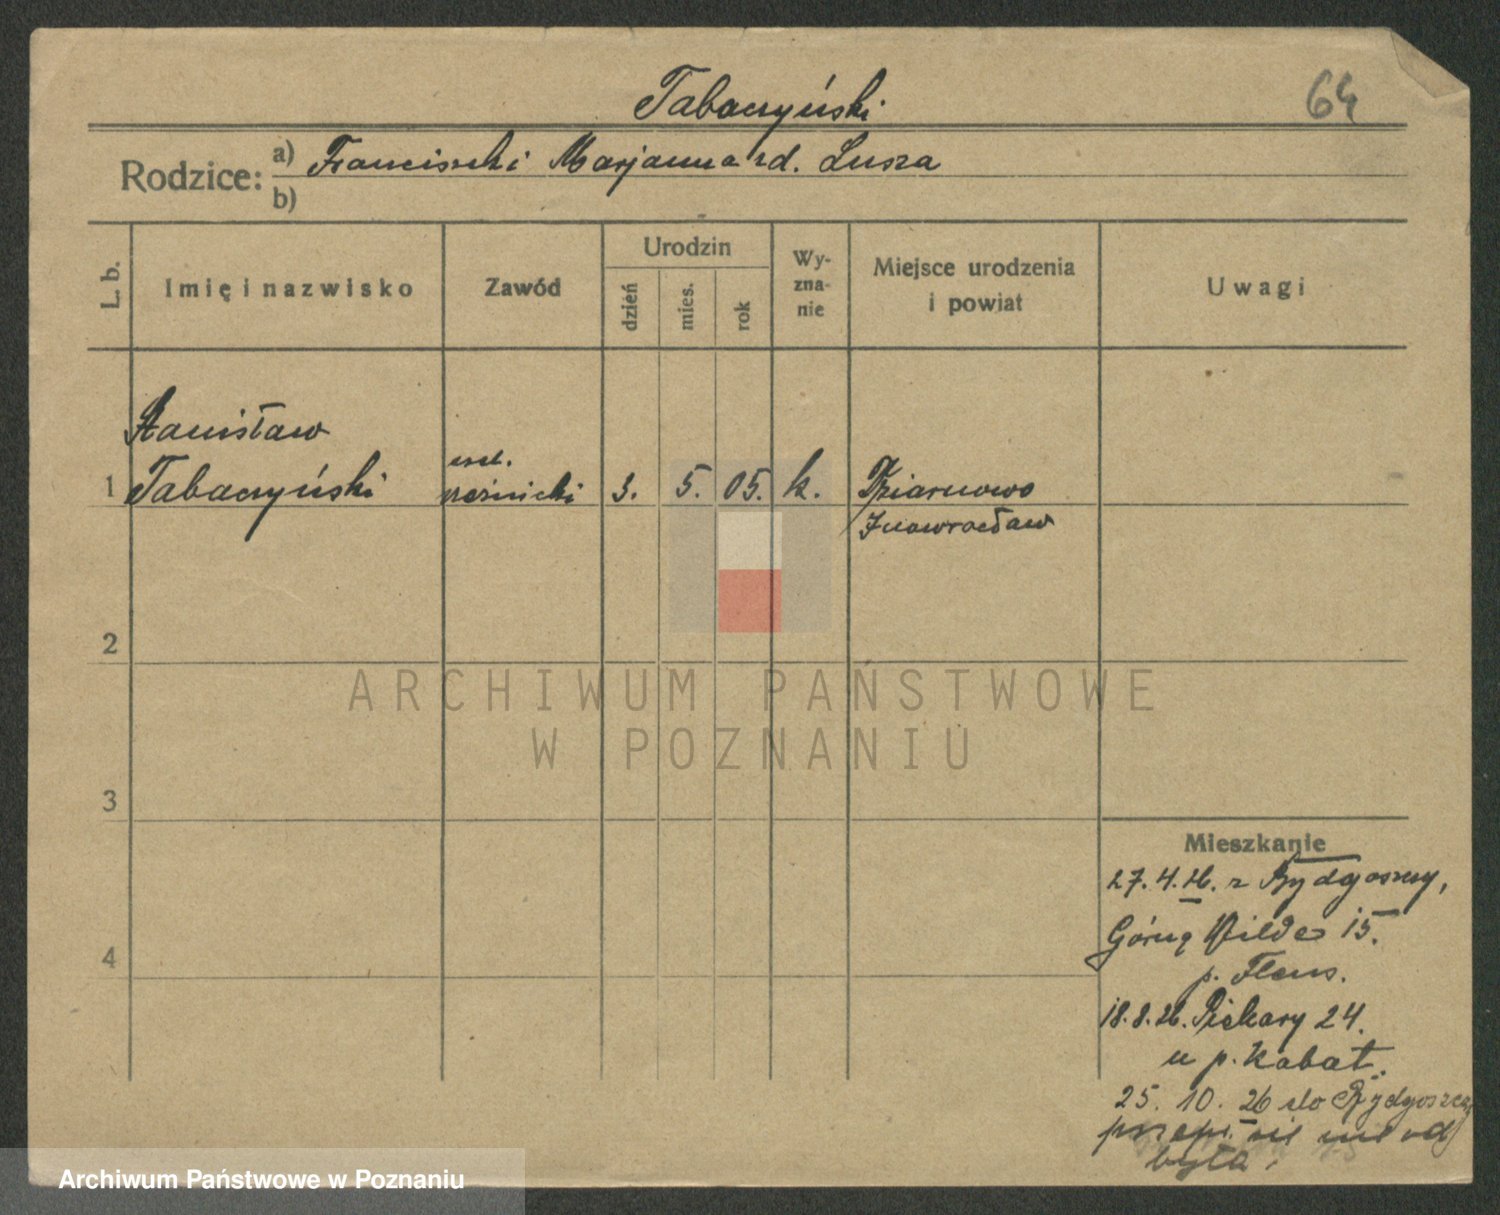 Tabaczyński
64
Rodzice: a) Franciszek i Marjanna zd. Lusza
b)
L. b.
Imię i nazwisko
Zawód
Urodzin
dzień
mies.
rok
Wy-
zna-
nie
Miejsce urodzenia
i powiat
Uwagi
Stanisław
1 Tabaczyński
czel.
rzeźnicki
3. 5. 05. k.
Dziarnowo
Inowrocław
2
3
4
ARCHIWUM PAŃSTWOWE
W POZNANIU
Mieszkanie
27. 4. 26. z Bydgoszczy,
Górną Wilde 15.
p. Flens.
18. 8. 26. Piekary 24.
u p. Kabat.
25. 10. 26 do Bydgoszczy
przepr. się nie od
była.
Archiwum Państwowe w Poznaniu